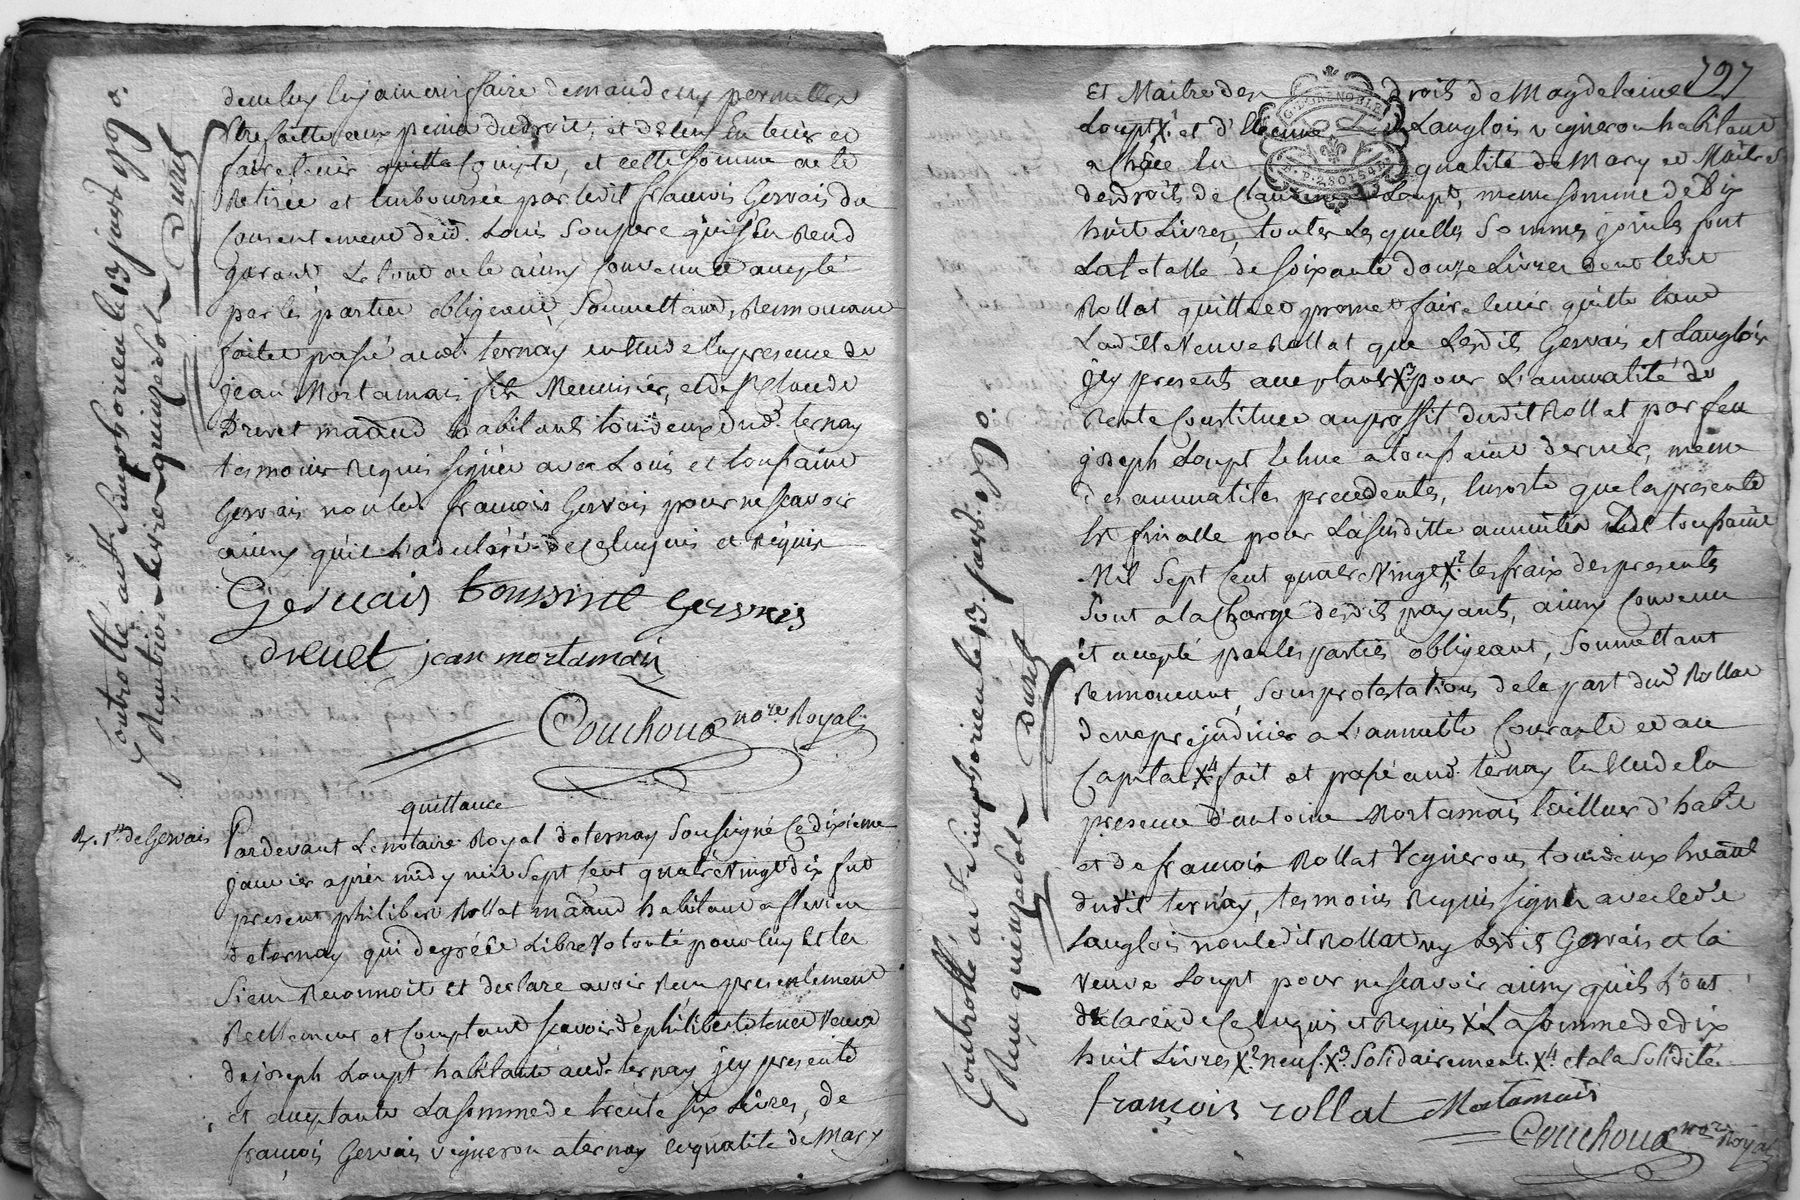 de celuy cy ainsin faire demande ny permettre
Etre faitte aux peines du droit, et de leur En tenir et
faire tenir quitte Coniste, et cette somme a eté
Retirée et Emboursée par ledit françois Gervais du
Consentement dud. Louis Son pere qui s'En Rend
garant Le tout a eté ainsy Convenu et accepté
par les parties obligeant, Soumettant, Rennonceant
fait et passé aud. ternay en l'etude En presence de
jean Mortamais fils Meunisier, et de sr Claude
Drevet marchand habitants tous deux dud. ternay
tesmoins Requis signés avec Louis et toussaint
Gervais non led. françois Gervais pour ne scavoir
ainsy qu'il L'a declaré de ce Enquis et Requis
Gervais toussint gervais
drevet jean mortamais
Couchoud nore. Royal
Controllé a St Simphorien le 13 janvr. 1790.
Reçu trois livres quinze sols Durel
quittance
R. 1re de Gervais
Pardevant Le notaire Royal de ternay Soussigné Ce dixieme
janvier après midy mil Sept Cent quatre Vingt dix fut
present philibert Rollat marchand habitant a flevieu
de ternay qui de gré et de Libre Volonté pour luy Et les
Siens Reconnoit et declare avoir Recu presentement
Reellement et Comptant scavoir d'ephiliberte tenet Veuve
de joseph Loupt habitante aud. ternay jcy presente
et acceptante La somme de trente six Livres, de
françois Gervais vigneron a ternay En qualité de Mary
797
Et Maitre des droits de Magdelaine
Loupt X1 et d'Etienne Langlois vigneron habitant
a En qualité de Mary et Maitre
des droits de Claudine Loupt, meme somme de Dix
huit Livres, toutes Les quelles Sommes jointes font
La totalle de soixante douze Livres dont ledit
Rollat quitte et promet faire tenir quitte tant
Ladite Veuve Rollat que Lesdits Gervais et Langlois
jcy presents acceptants X3 pour L'annualité de
Rente Constituée au proffit dudit Rollat par feu
joseph Loupt Echue a toussaint dernier, meme
des annualités precedentes, Ensorte que la presente
Est finalle pour La susditte annuité de toussaint
Mil Sept Cent quatre Vingt X2. les fraix des presentes
Sont a la Charge desdits payants, ainsy Convenu
et accepté par les parties obligeant, Soumettant
Rennonceant, Sous protestations de la part dud. Rollat
de ne prejudicier a L'annuité Courante et au
Capital X4 fait et passé aud. ternay En l'etude En la
presence d'antoine Mortamais tailleur d'habit
et de françois Rollat Vigneron tous deux habitants
dudit ternay, tesmoins Requis signés avec ledit
Langlois non ledit Rollat ny Lesdits Gervais et la
veuve Loupt pour ne scavoir ainsy qu'ils L'ont
declaré de ce Enquis et Requis X1 La somme de dix
huit Livres X2. neuf. X3. Solidairement. X4 et a la Solidité
françois rollat Mortamais
Couchoud nore Royal
Controllé a St Simphorien le 13 janvr. 1790.
Reçu quinze sols Durel
G. DE GRENOBLE